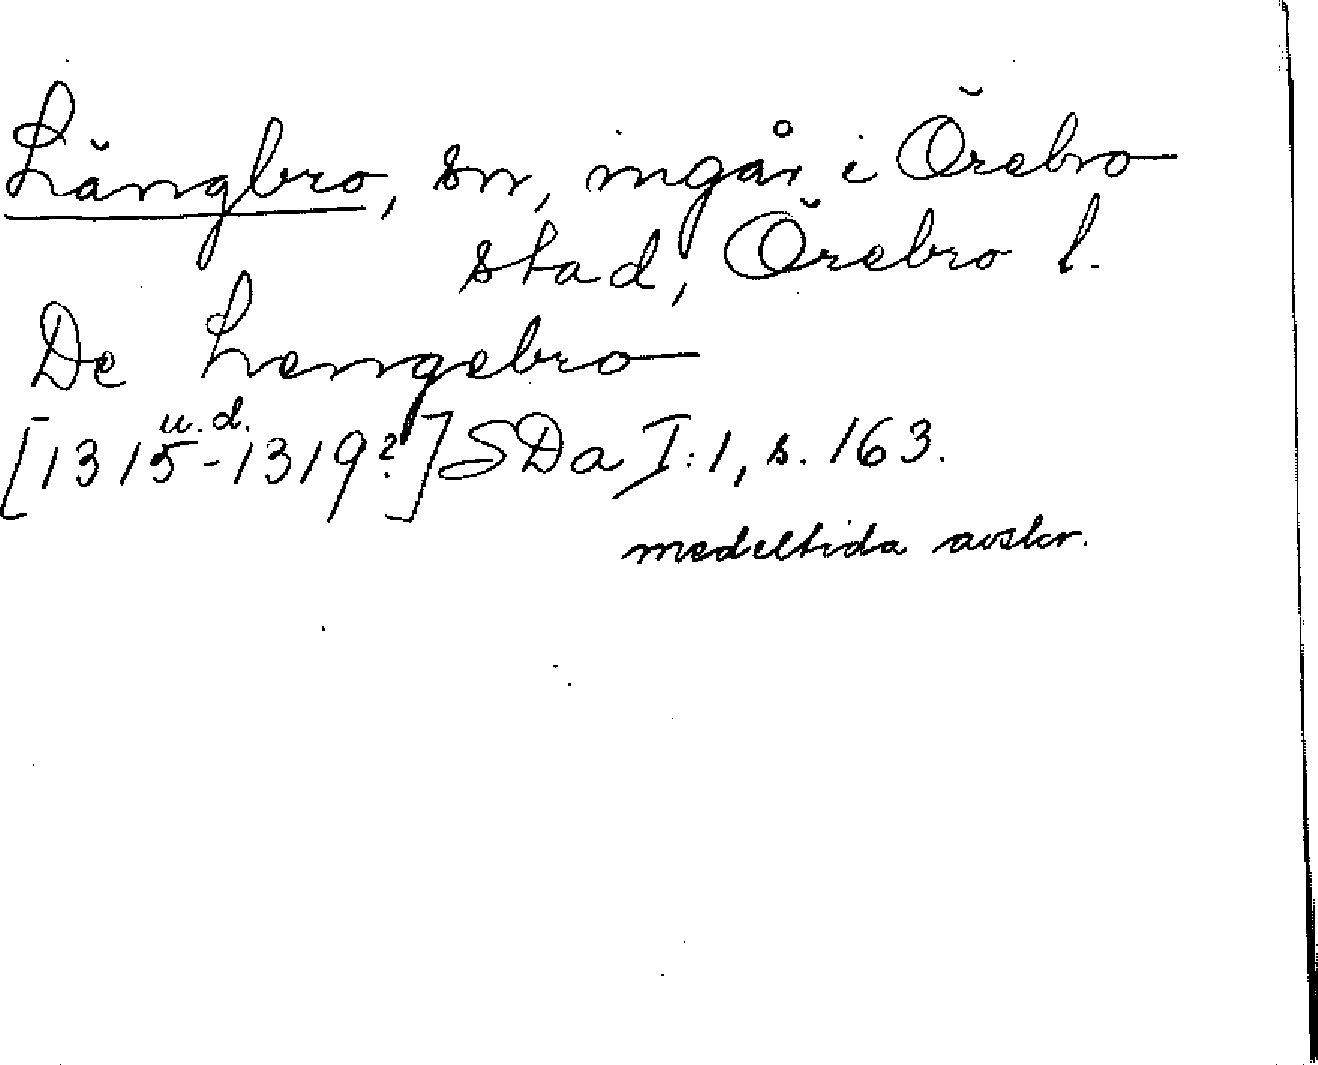 Längbro, sn, ingår i Örebro
stad, Örebro l.
De Lengebro
[1315-1319?] u.d. SDa I:1, s. 163.
medeltida avskr.